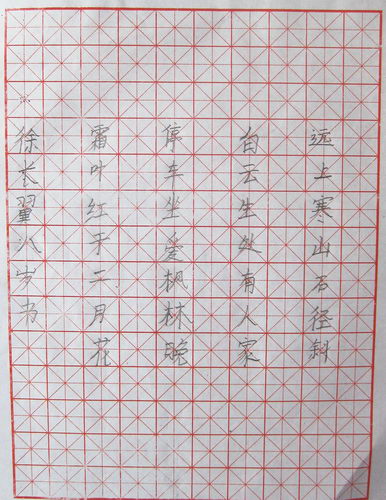 远上寒山石径斜
白云生处有人家
停车坐爱枫林晚
霜叶红于二月花
徐长翼八岁书